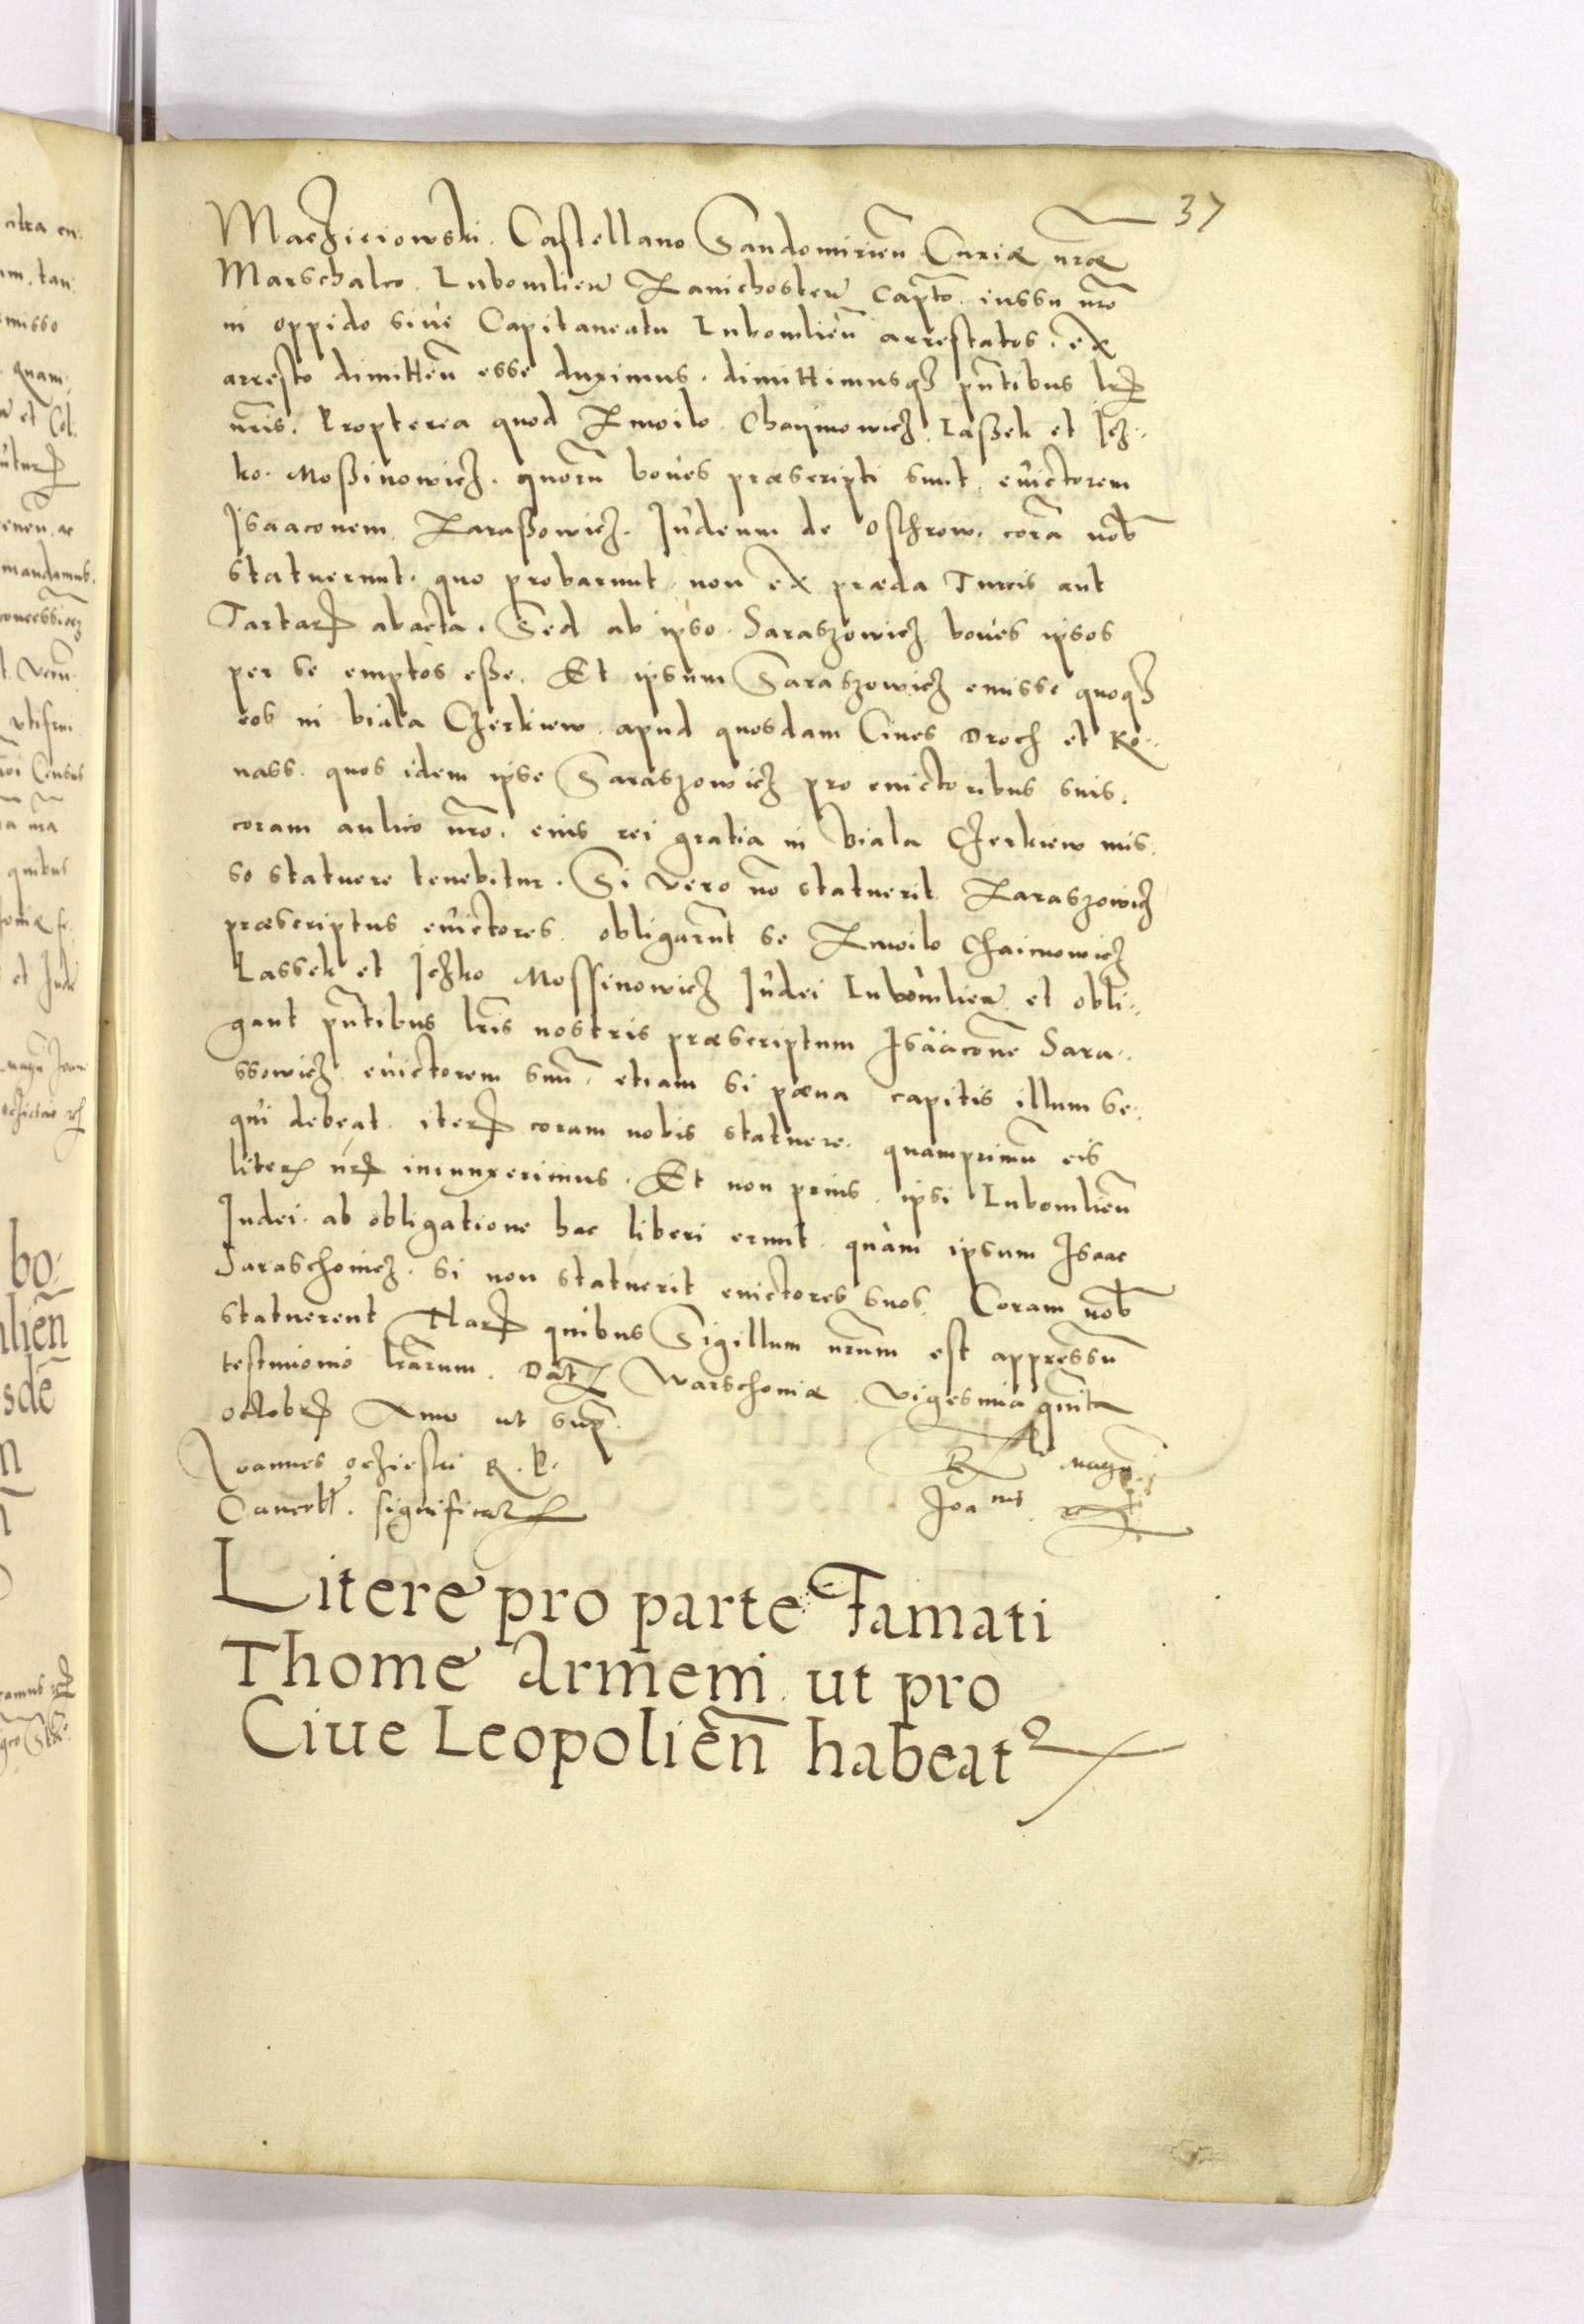 37
Maczieiowski. Castellano Sandomirien̄ Curiæ nr̄æ
Marschalco. Lubomlien̄ Zawichosten̄ Capt̄o. iussu nr̄o
in oppido siue Capitaneatu Lubomlien̄ arrestatos. ex
arresto dimitten̄ esse duximus. dimittimusqȝ pn̄tibus lr̄is
nr̄is. Propterea quod Zmoilo. Chaymowicz. Laßek et Jcz..
ko. Moßinowicz. quorū boues præscripti sunt, euictorem
Isaaconem. Zaraßowicz. Iudeum de Ostrow. corā nob̄
statuerunt. quo probarunt. non ex præda Turcis aut
Tartaris abacta. Sed ab ipso. Saraszowicz. boues ipsos
per se emptos eße. Et ipsum Saraszowicz emisse quoqȝ
eos in biala Czerkiew. apud quosdam Ciues Droch et Ro..
nass. quos idem ipse Saraszowicz pro euictoribus suis.
coram aulico nr̄o. eius rei gratia in biala Czerkiew mis.
so statuere tenebitur. Si vero nō statuerit Zaraszowicz
præscriptus euictores. obligarūt se Zmoilo Chaimowicz
Lassek et Jczko Mossinowicz Iudei Lubomlien̄. et obli..
gant pn̄tibus lr̄is nostris præscriptum Isaaconē Sara..
ssowicz. euictorem suū. etiam si pæna capitis illum se..
qui debeat. iterū coram nobis statuere. quamprimū eis
literis nr̄is iniunxerimus. Et non prius. ipsi Lubomlien̄
Iudei. ab obligatione hac liberi erunt. quàm ipsum Isaac
Saraschouicz. si non statuerit euictores suos. Coram nob̄
statuerent Harū quibus Sigillum nr̄um est appressū
testimonio lr̄arum. Dat̄ Warschouiæ. Vigesima quinta
octobris Anno ut sup̄.
Joannes oczieski R. P.
Cancell̄. significauit
magn̄
Joannis
Litere pro parte Famati
Thome Armeni. ut pro
Ciue Leopolien̄ habeatur